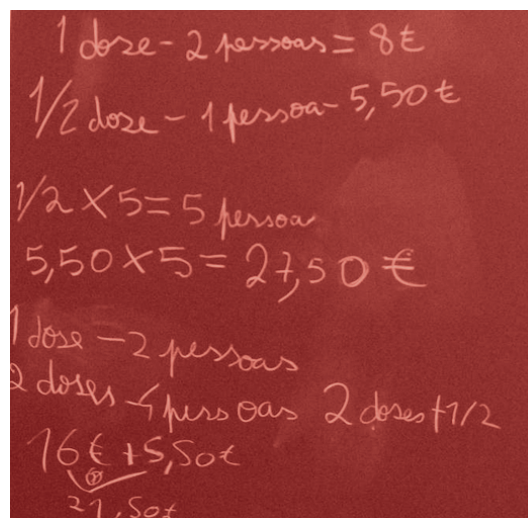 1 dose - 2 pessoas = 8€
1/2 dose - 1 pessoa - 5,50€
1/2 X 5 = 5 pessoa
5,50 X 5 = 27,50 €
1 dose - 2 pessoas
2 doses - 4 pessoas 2 doses + 1/2
16€ + 5,50€
21,50€